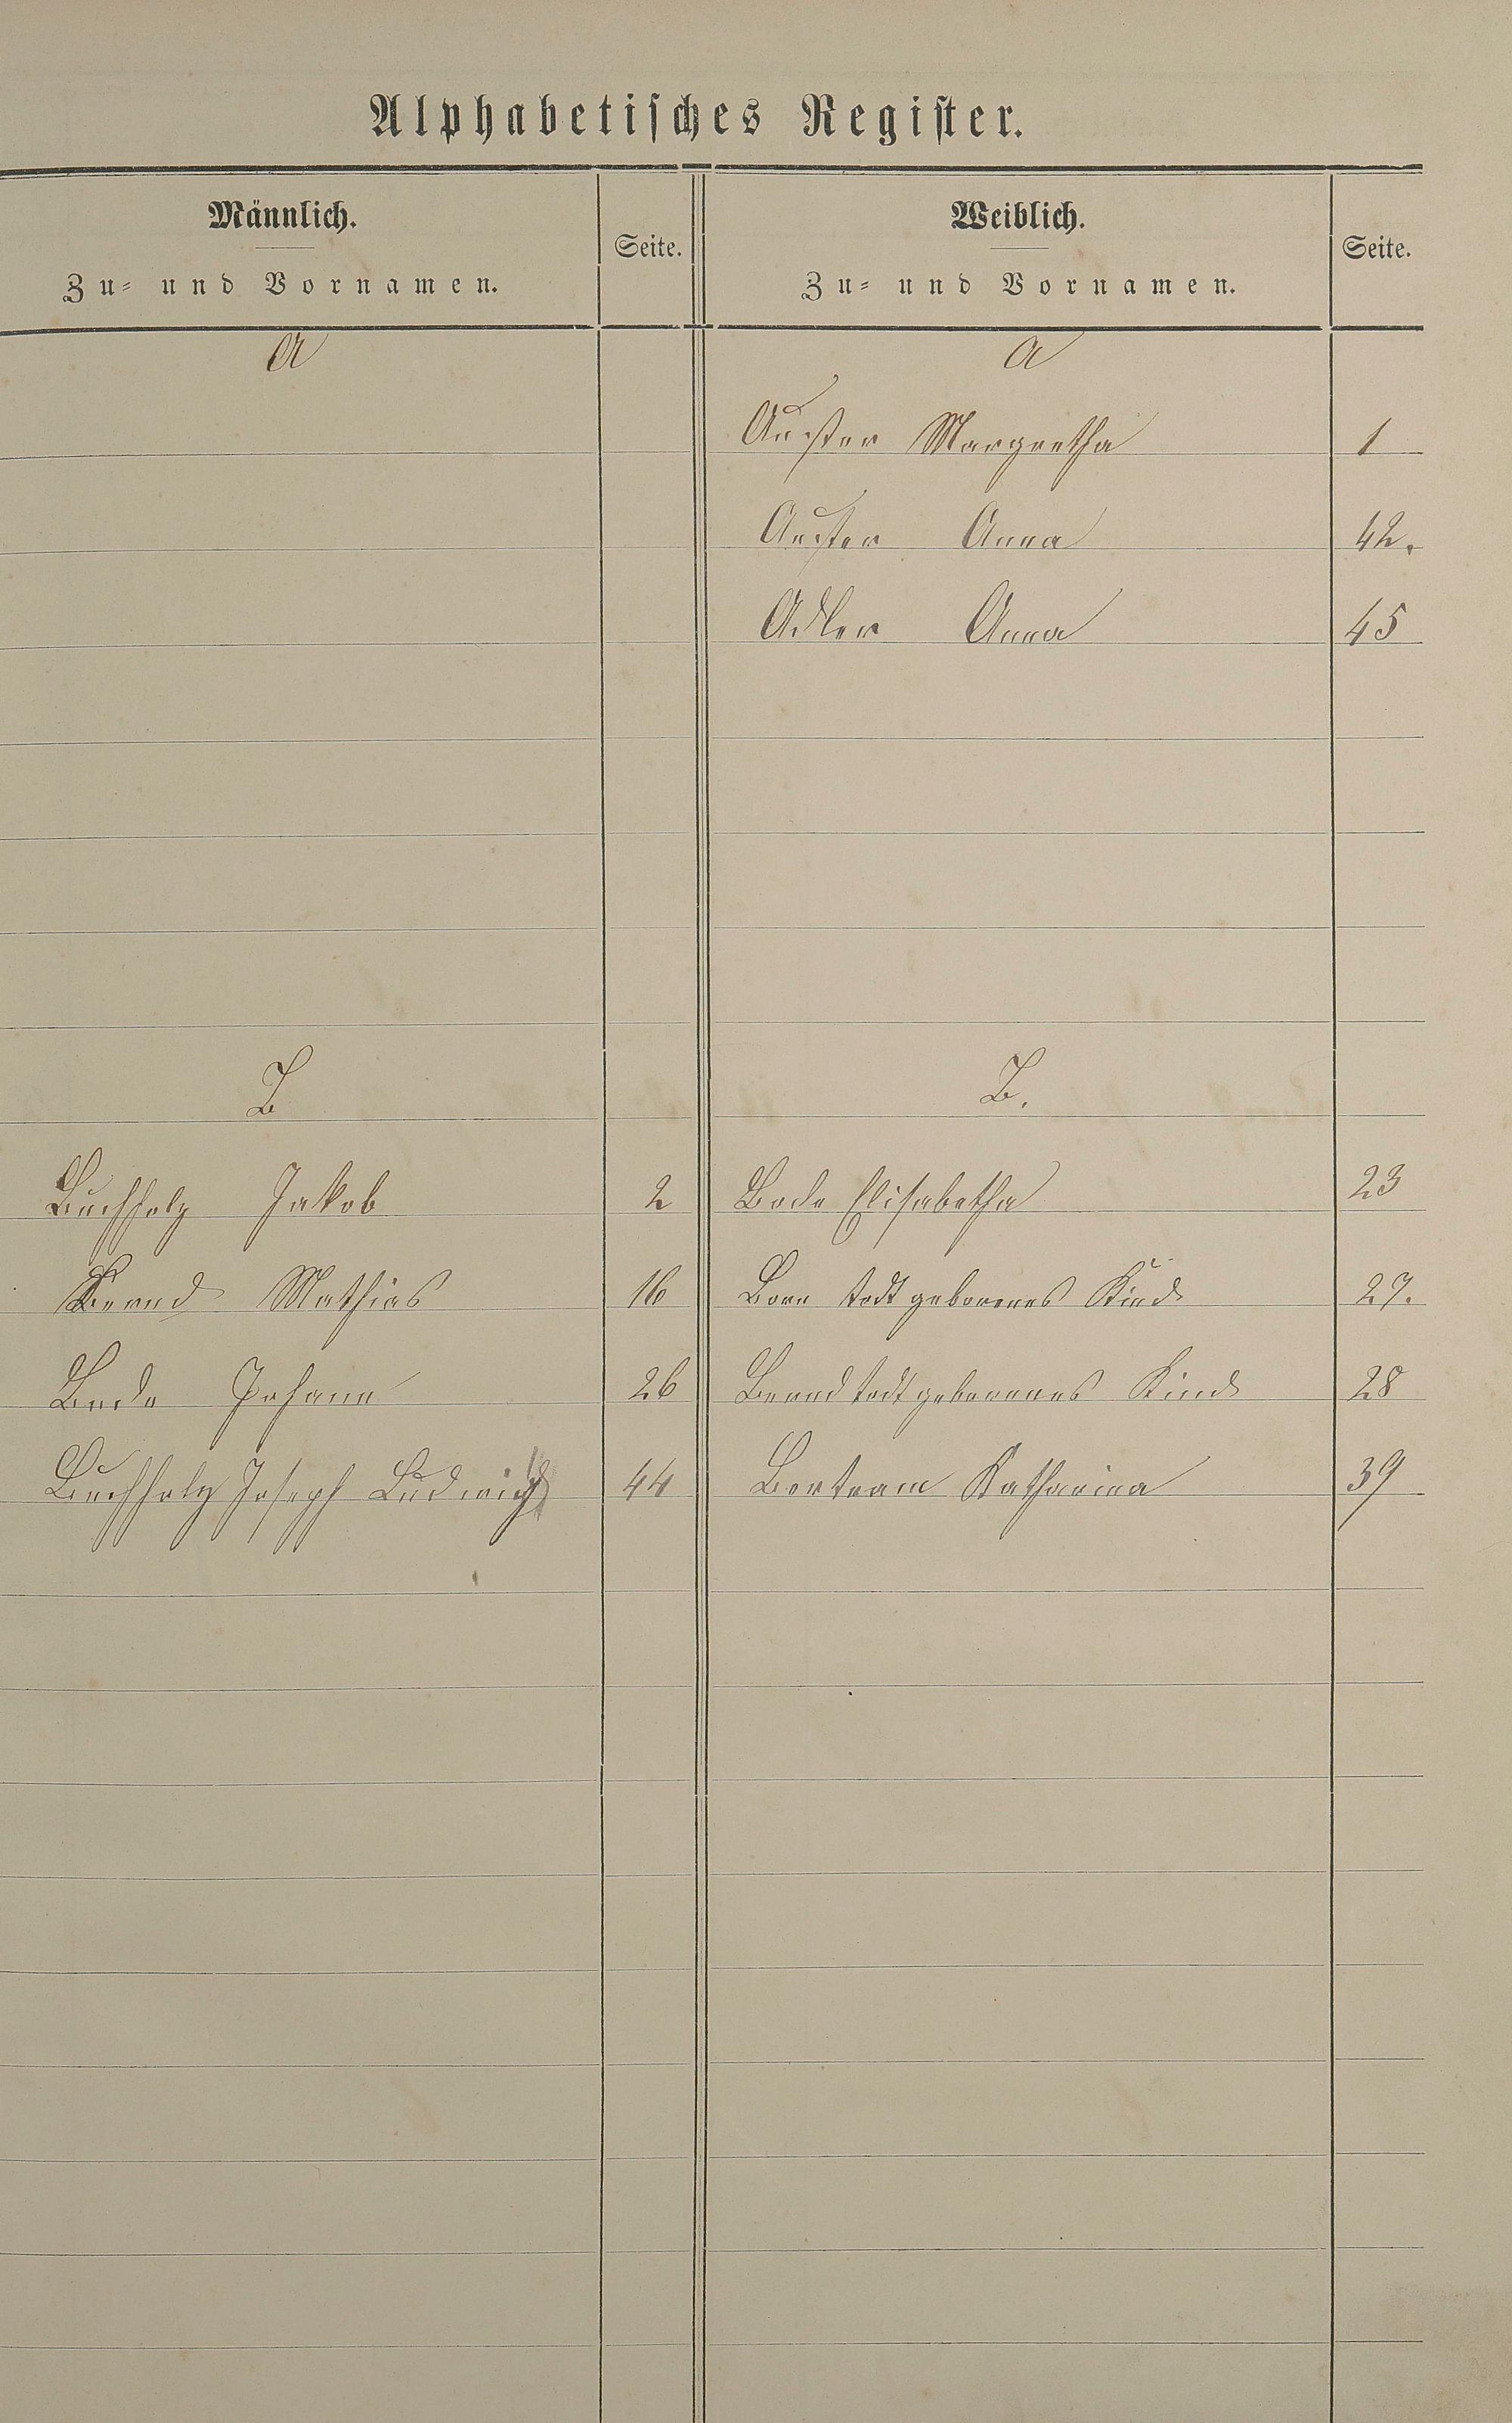 Alphabetisches Register.
Männlich.
Zu- und Vornamen.
Seite.
Weiblich.
Zu- und Vornamen.
Seite.
A
A
Auster Margretha 1
Auster Anna 42.
Adler Anna 45
B
B.
Buchholz Jakob 2
Bode Elisabetha 23
Bernd Mathias 16
Born todt geborenes Kind 27.
Bode Johann 26
Bernd todt geborenes Kind 28
Buchholz Joseph Ludwig 44
Bertram Katharina 39